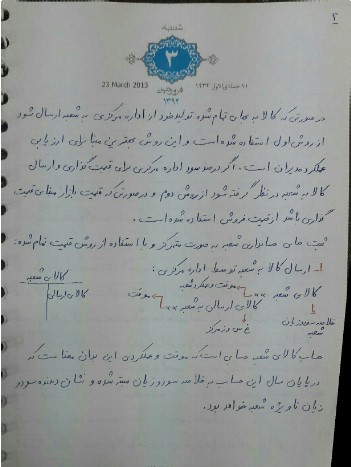 ۲
شنبه
۳
23 March 2013
۱۱ جمادی الاول ۱۴۳۴
فروردین
۱۳۹۲
در صورتی که کالا به بهای تمام شده تولید خود از اداره مرکزی به شعبه ارسال شود
از روش اول استفاده شده است و این روش بهترین مبنا برای ارزیابی
عملکرد مدیران است. اگر درصد سود اداره مرکزی برای قیمت گذاری و ارسال
کالا به شعبه در نظر گرفته شود از روش دوم و در صورتی که قیمت بازار مبنای قیمت
گذاری باشد از قیمت فروش استفاده شده است.
ثبت های حسابداری شعبه به صورت متمرکز و با استفاده از روش قیمت تمام شده:
۱- ارسال کالا به شعبه توسط اداره مرکزی:
کالای شعبه
کالای شعبه ×× موقت و عملکرد شعبه
کالای ارسالی
کالای ارسالی به شعبه ×× موقت
خلاصه سود و زیان شعبه
حساب کالای شعبه حسابی است که موقت و عملکردی این بدان معناست که
در پایان سال این حساب به خلاصه سود و زیان بسته شده و نشان دهنده سود و
زیان ناویژه شعبه خواهد بود.